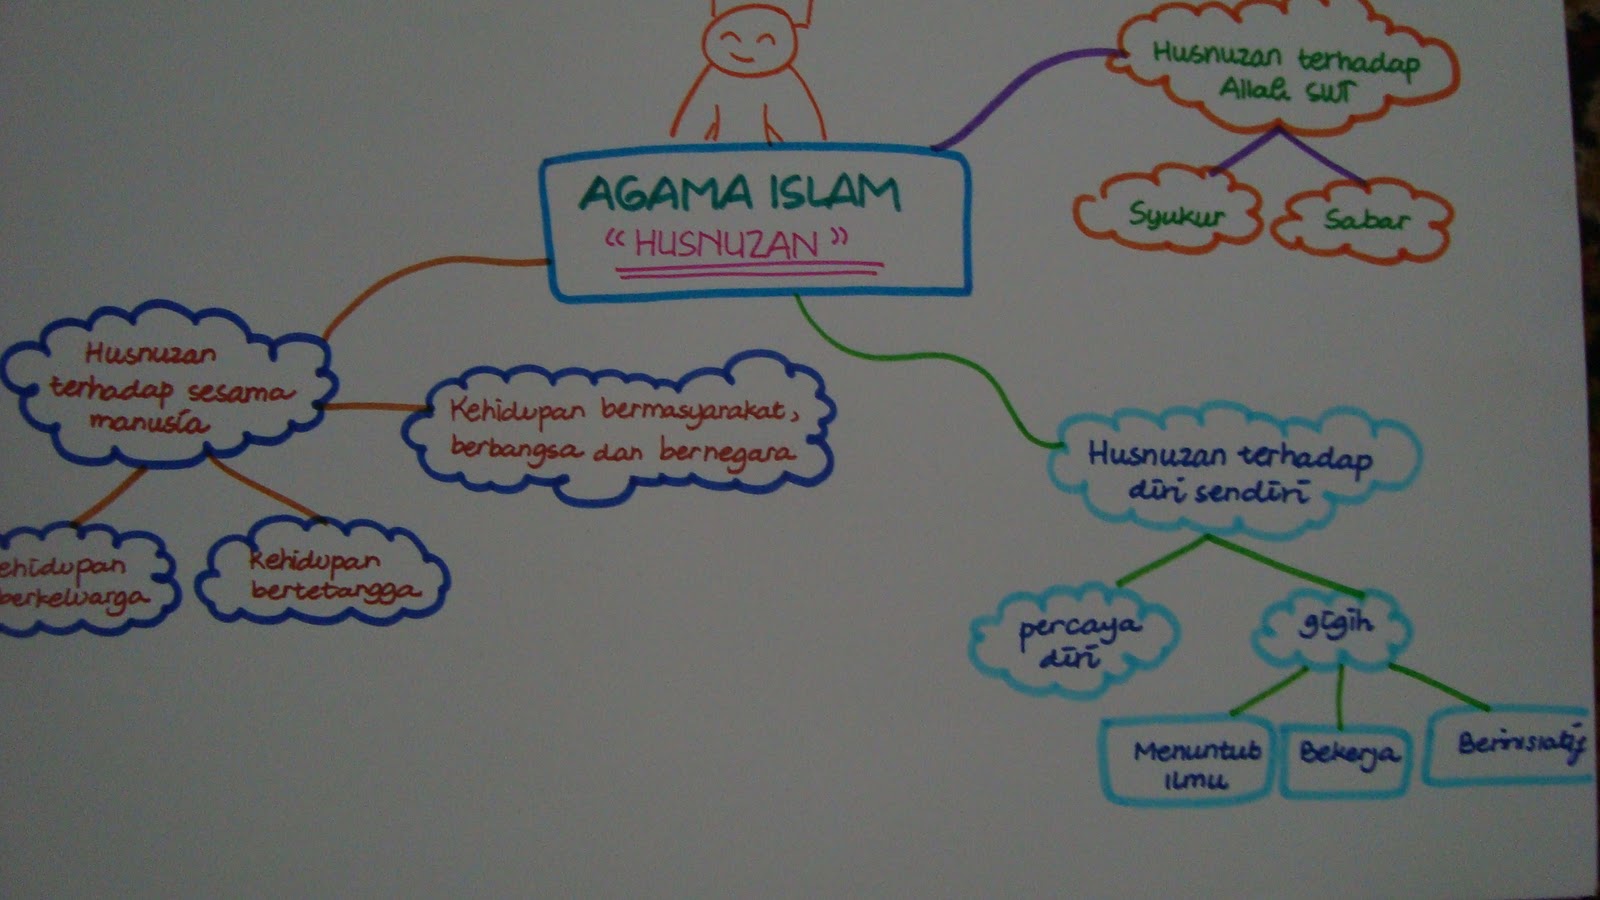 AGAMA ISLAM
“ HUSNUZAN ”
Husnuzan terhadap
Allah SWT
Syukur
Sabar
Husnuzan
terhadap sesama
manusia
Kehidupan bermasyarakat,
berbangsa dan bernegara
ehidupan
berkeluarga
Kehidupan
bertetangga
Husnuzan terhadap
diri sendiri
percaya
diri
gigih
Menuntut
ilmu
Bekerja
Berinisiatif